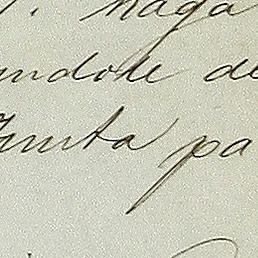 . haga
ndole de
Junta pa